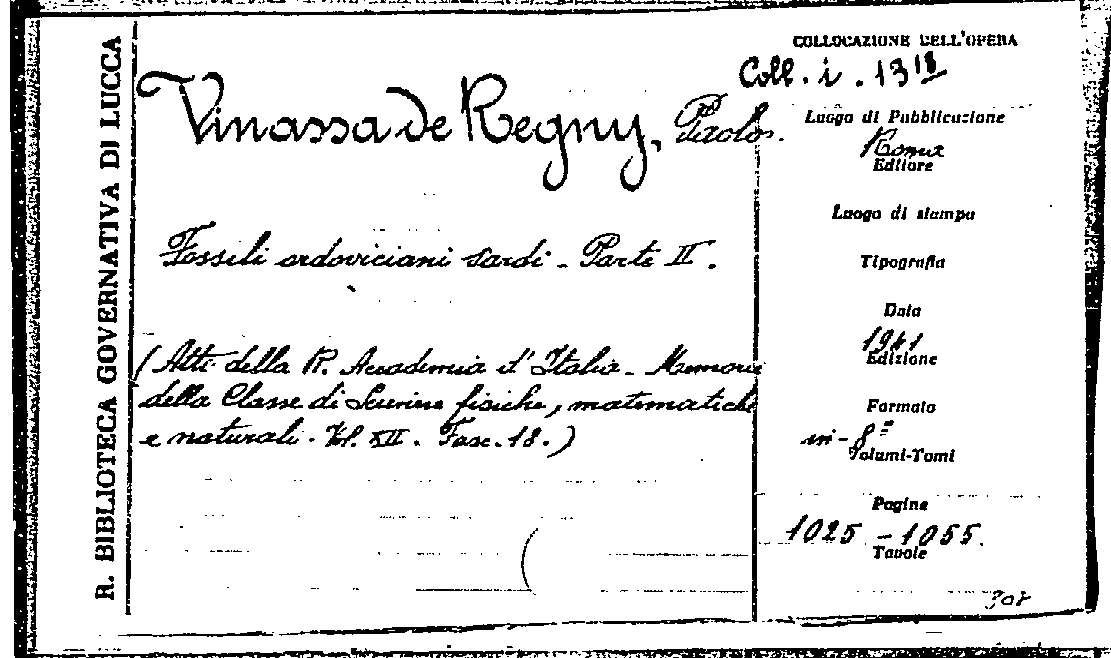 R. BIBLIOTECA GOVERNATIVA DI LUCCA
Vinassa de Regny, Paolo.
Fossili ordoviciani sardi - Parte II.
(Atti della R. Accademia d'Italia - Memorie
della Classe di Scienze fisiche, matematiche
e naturali. Vol. XII. Fasc. 18.)
COLLOCAZIONE DELL'OPERA
Coll. i. 13 18
Luogo di Pubblicazione
Roma
Editore
Luogo di stampa
Tipografia
Data
1941
Edizione
Formato
in-8°
Volumi-Tomi
Pagine
1025 - 1055.
Tavole
308